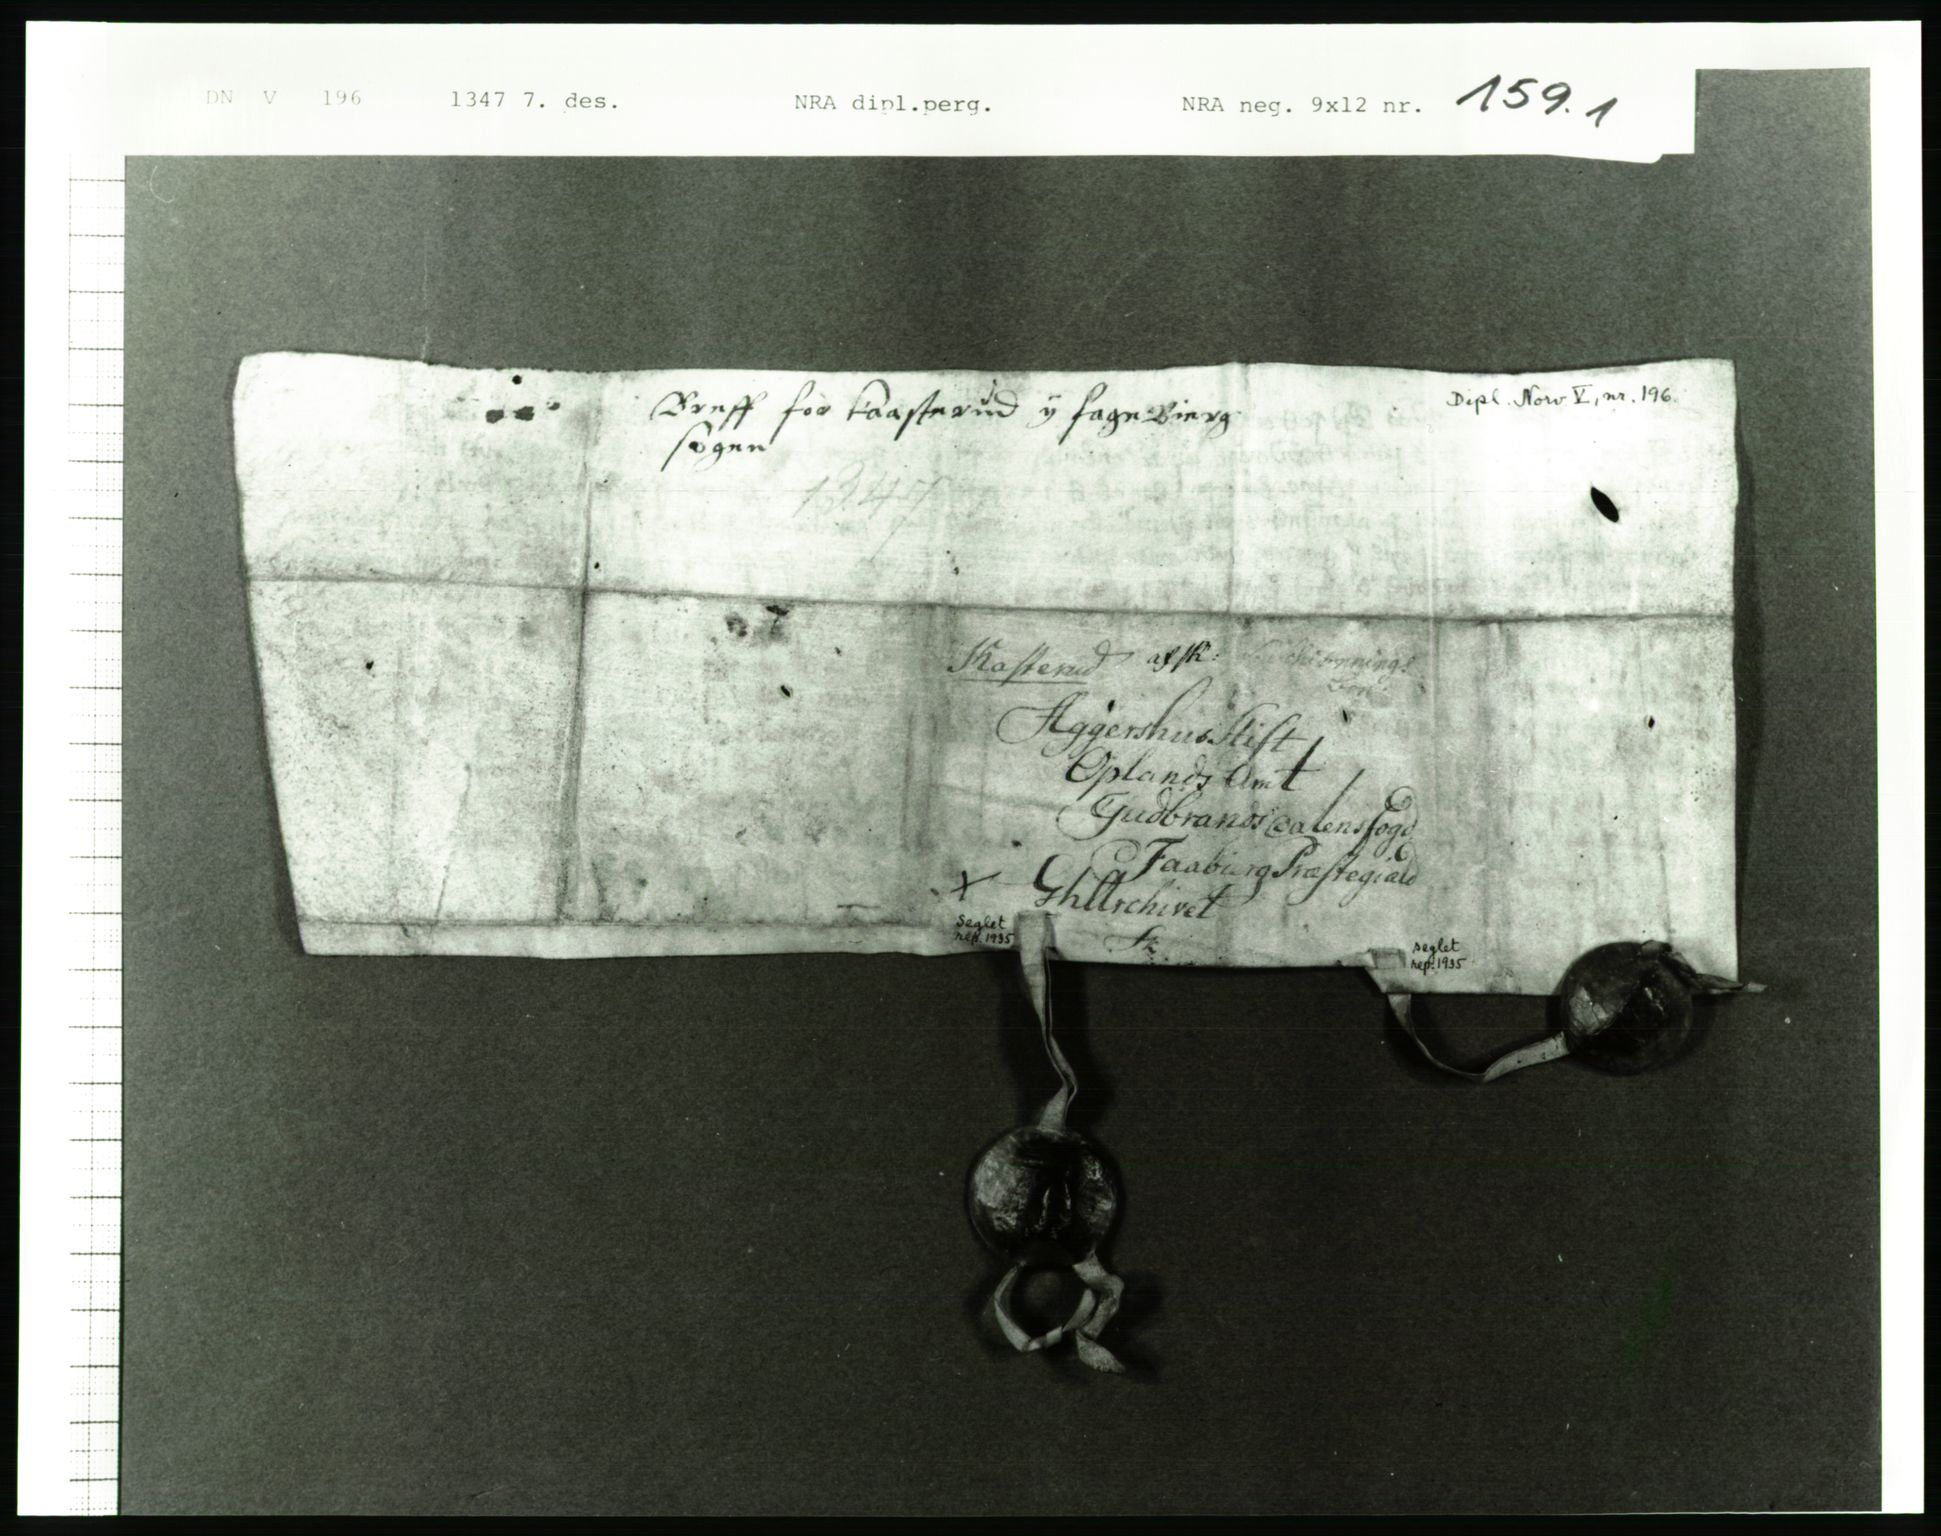 DN V 196 1347 7. des. NRA dipl.perg. NRA neg. 9x12 nr. 159.1
Dipl. Norv V, nr. 196.
Breff for kaasterud y fage Bierg
sogen
1347
Kasterud afsk:
Aggershus Stift
Oplands Amt
Gudbrandsdalens fogd
Faaburg Præstegiæld
GhlArchivet
Seglet
rep. 1935
seglet
rep. 1935